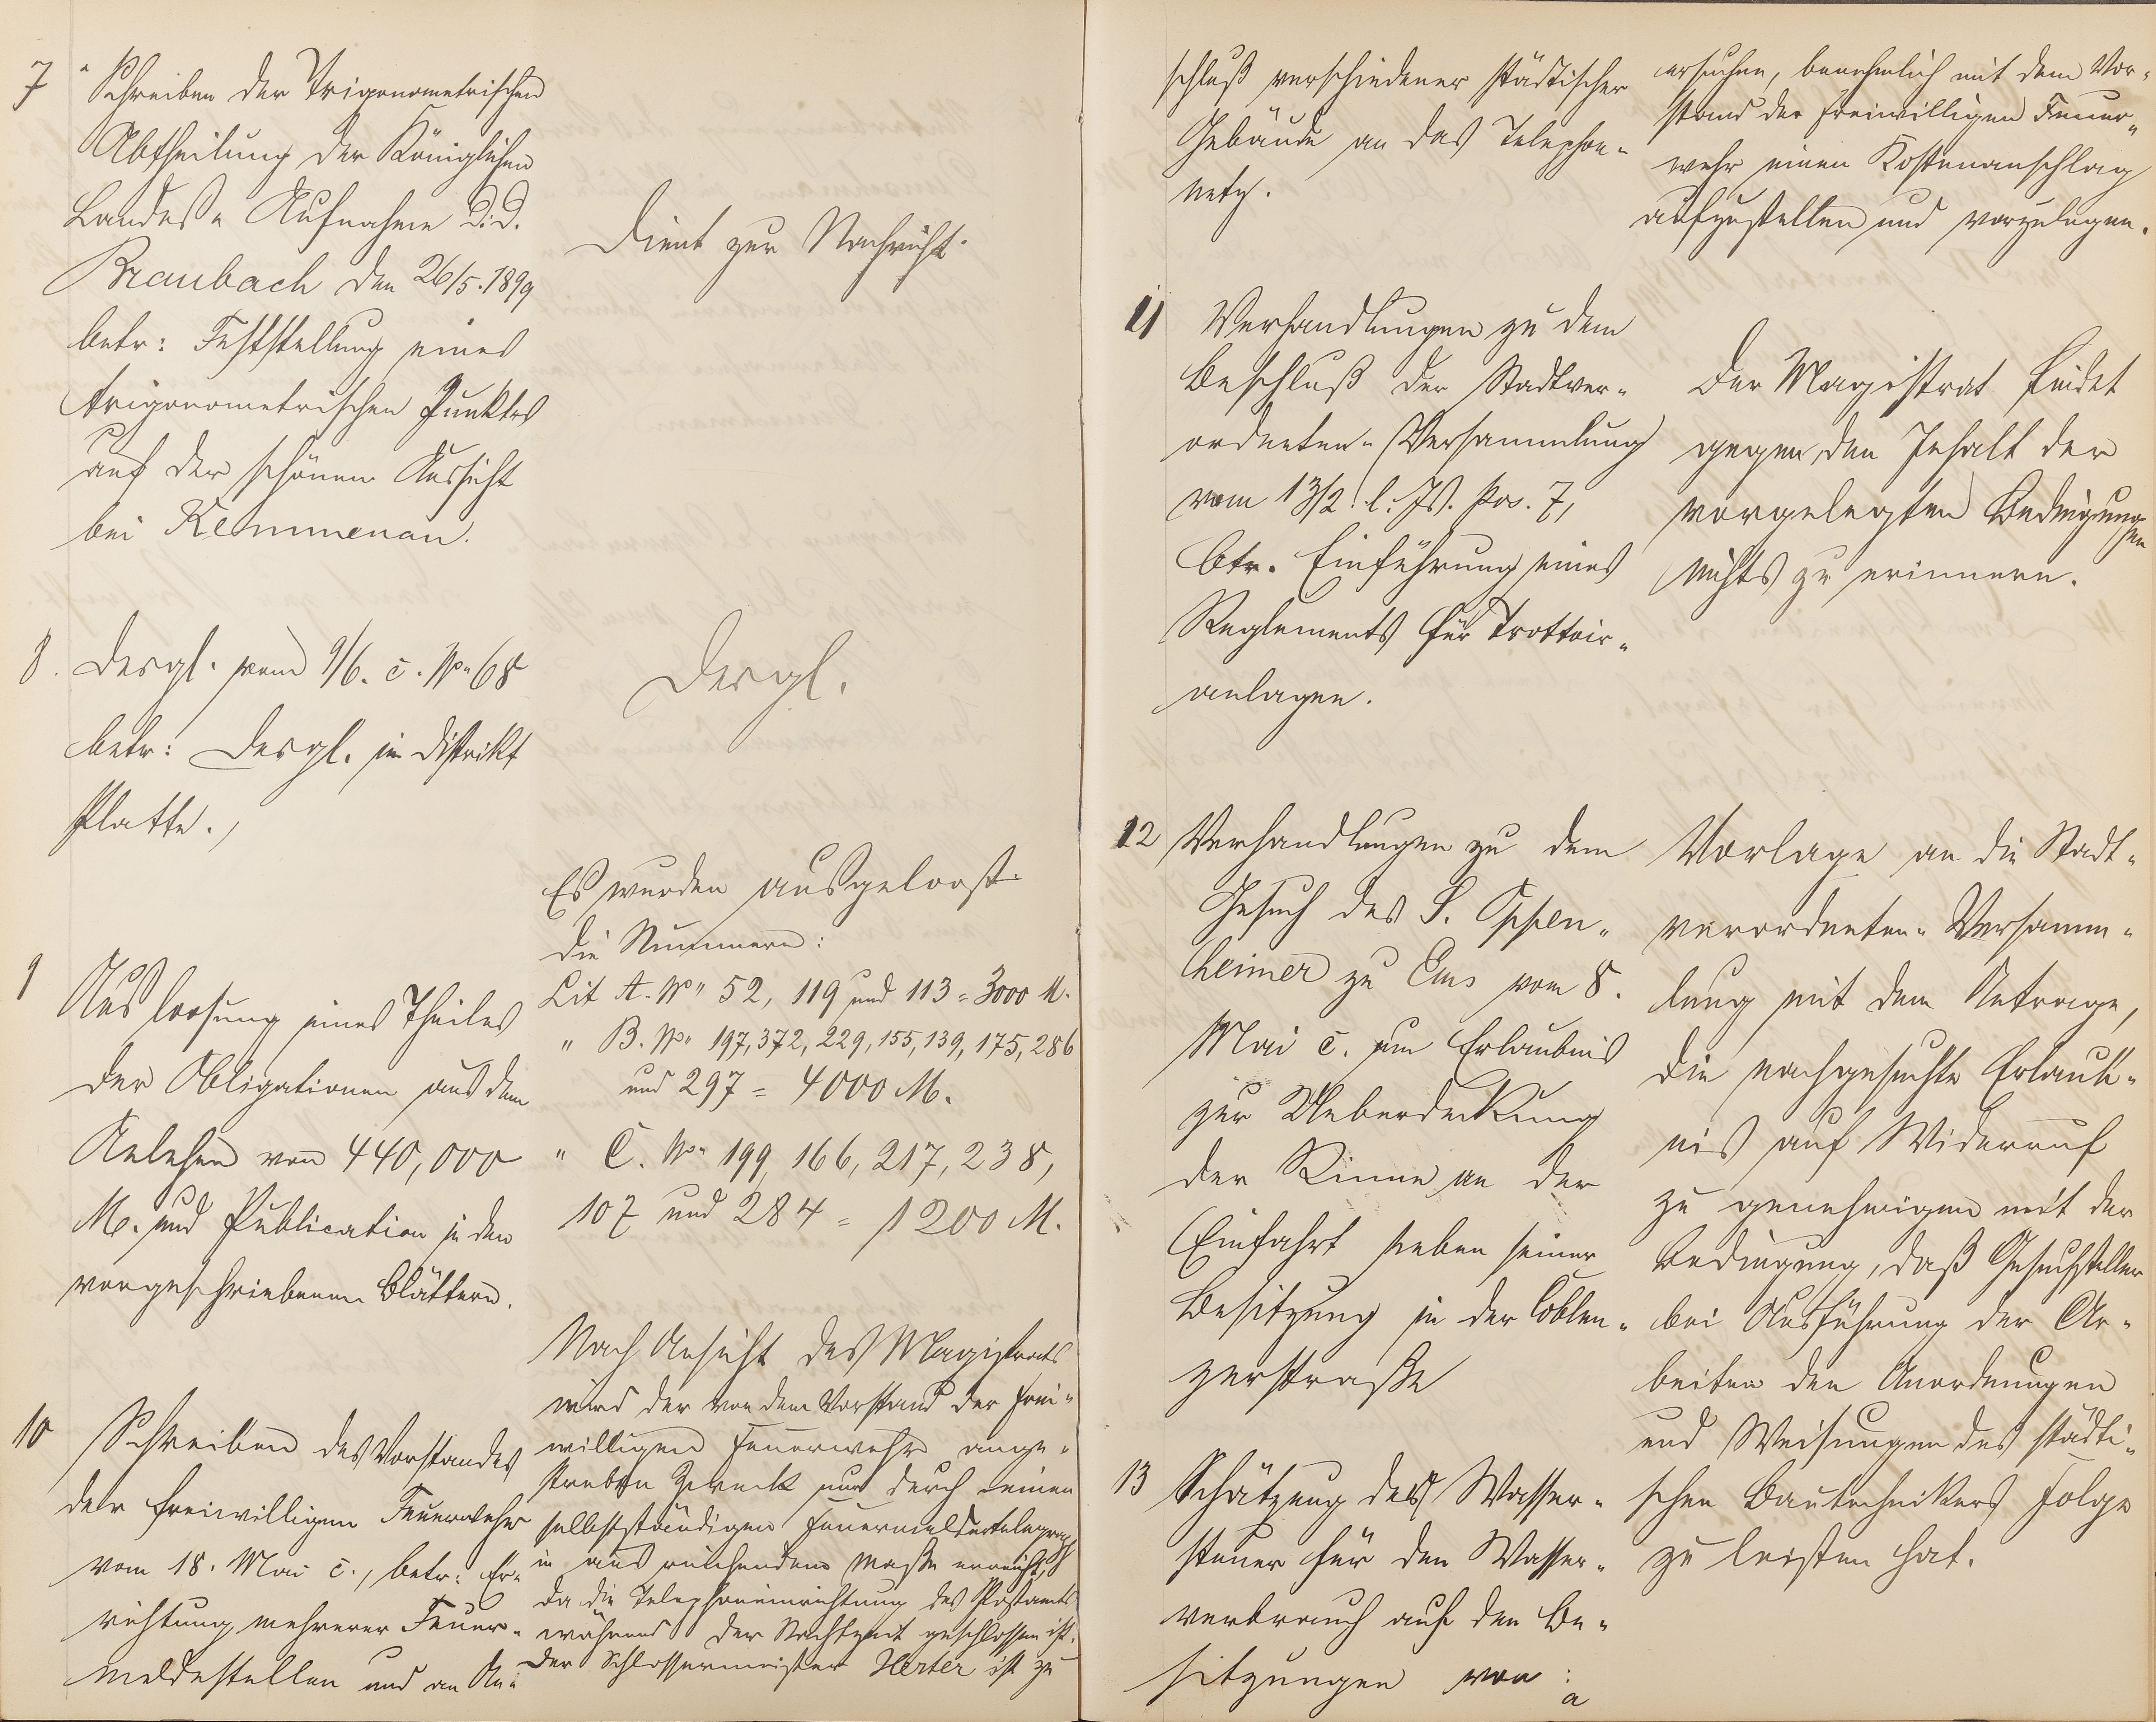 7 Schreiben der Trigonometrischen
Abtheilung der Königlichen
Landes- Aufnahme d.d.
Braubach den 26/5.1899
betr: Feststellung eines
trigonometrischen Punktes
auf der schönen Aussicht
bei Kemmenau.
Dient zur Nachricht.
8. Desgl. vom 9/6. c. No 68
betr: Desgl. im Distrikt
Platte.,
Desgl.
9 Ausloosung eines Theiles
der Obligationen aus dem
Anlehen von 440,000
M. und Publication in den
vorgeschriebenen Blättern.
Es wurden ausgeloost
die Nummern:
Lit A. No 52, 119 und 113 = 3000 M.
" B. No 197, 372, 229, 155, 139, 175, 286
und 297 = 4000 M.
" C. No 199, 166, 217, 238,
107 und 284 = 1200 M.
10 Schreiben des Vorstandes
der freiwilligen Feuerwehr
vom 18. Mai c., betr: Er-
richtung mehrerer Feuer-
meldestellen und an An-
Nach Ansicht des Magistrats
wird der von dem Vorstand der frei-
willigen Feuerwehr ange-
strebte Zweck nur durch einen
selbstständigen Feuermeldetelegraph
in ausreichendem Maße erreicht,
da die Telephoneinrichtung des Postamts
während der Nachtzeit geschlossen ist.
Der Schlossermeister Herter ist zu
schluß verschiedener städtischer
Gebäude an das Telephon-
netz.
ersuchen, benehmlich mit dem Vor-
stand der freiwilligen Feuer-
wehr einen Kostenanschlag
aufzustellen und vorzulegen.
11 Verhandlungen zu dem
Beschluß der Stadtver-
ordneten-Versammlung
vom 13/2. l. Js. Pos. 7,
btr. Einführung eines
Reglements für Trottoir-
anlagen.
Der Magistrat findet
gegen den Inhalt der
vorgelegten Bedingungen
nichts zu erinnern.
12 Verhandlungen zu dem
Gesuch des S. Oppen-
heimer zu Ems vom 8.
Mai c. um Erlaubnis
zur Ueberdeckung
der Rinne an der
Einfahrt neben seiner
Besitzung in der Coblen-
zerstraße
Vorlage an die Stadt-
verordneten-Versamm-
lung mit dem Antrage,
die nachgesuchte Erlaub-
nis auf Widerruf
zu genehmigen mit der
Bedingung, daß Gesuchsteller
bei Ausführung der Ar-
beiten den Anordnungen
und Weisungen des städti-
schen Bautechnikers Folge
zu leisten hat.
13 Schätzung des Wasser-
steuer für den Wasser-
verbrauch auf den Be-
sitzungen von :
a